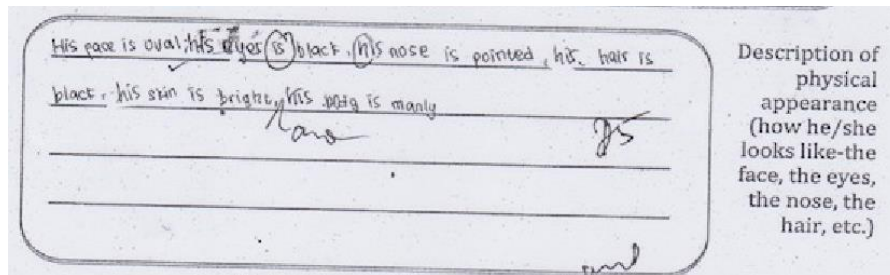 His pace is oval, his eyes is black, his nose is pointed, his. hair is
black, his skin is bright, his body is manly
and
Description of
physical
appearance
(how he/she
looks like-the
face, the eyes,
the nose, the
hair, etc.)